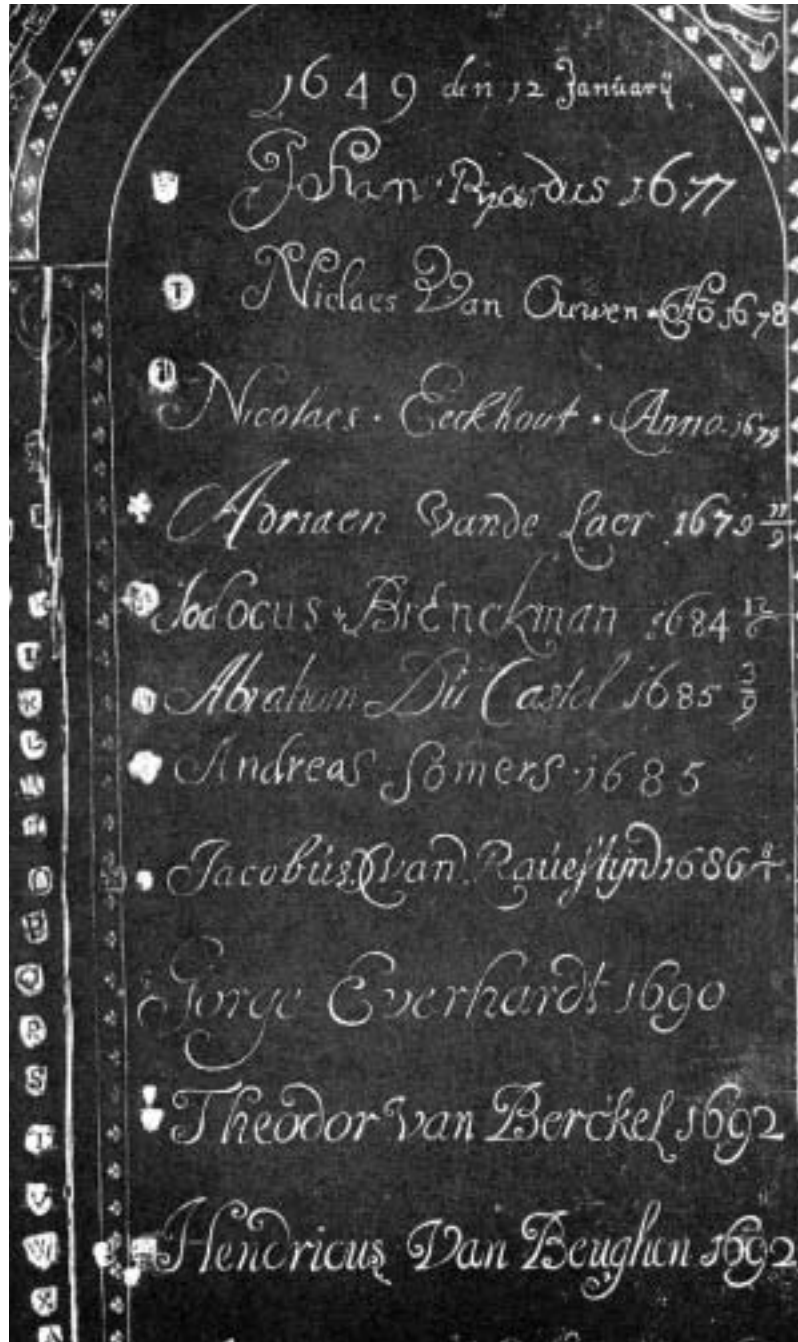 1649 den 12 Januarij
Johan 1677
Niclaes Van Ouwen Aō 1678
Nicolaes · Eeckhout · Anno · 1679
Adriaen Vande Laer 1679 11/9
Jodocus Brenckman 1684 12/6
Abraham Du Castel 1685 3/9
Andreas Somers · 1685
Jacobús Van Raúestÿn 1686 8/1
Gorge Everhardt 1690
Theodor van Berckel 1692
Hendricus Van Beughen 1692
T
R
S
T
V
W
X